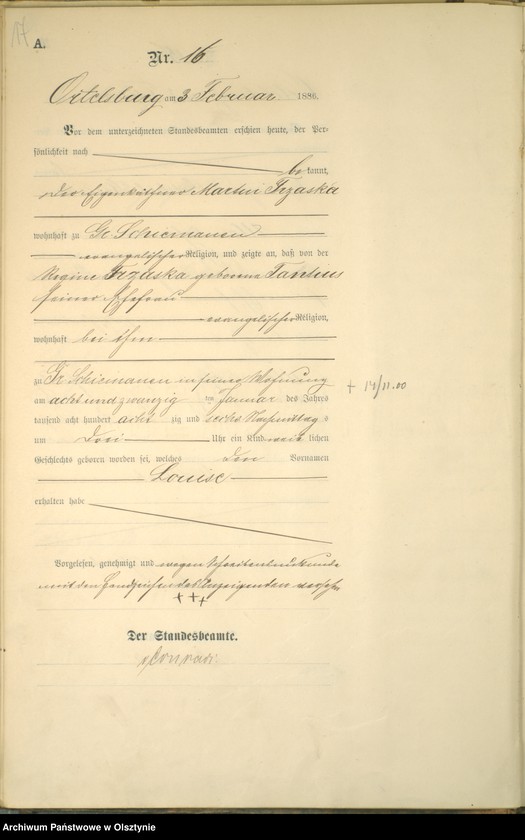 17
A.
Nr. 16
Ortelsburg am 3 Februar 1886.
Vor dem unterzeichneten Standesbeamten erschien heute, der Per-
sönlichkeit nach
be kannt,
der Eigenkäthner Martin Trzaska
wohnhaft zu Gr. Schiemanen
evangelischer Religion, und zeigte an, daß von der
Regine Trzaska geborene
seiner Ehefrau
evangelischer Religion,
wohnhaft bei ihm
zu Gr. Schiemanen in seiner Wohnung
am acht und zwanzig ten Januar des Jahres
tausend acht hundert acht zig und sechs Nachmittag s
um drei Uhr ein Kind weib lichen
Geschlechts geboren worden sei, welches den Vornamen
Louise
erhalten habe
Vorgelesen, genehmigt und wegen Schreibensunkunde
mit den Handzeichen des Anzeigenden versehen
+++
Der Standesbeamte.
Conradi
Archiwum Państwowe w Olsztynie